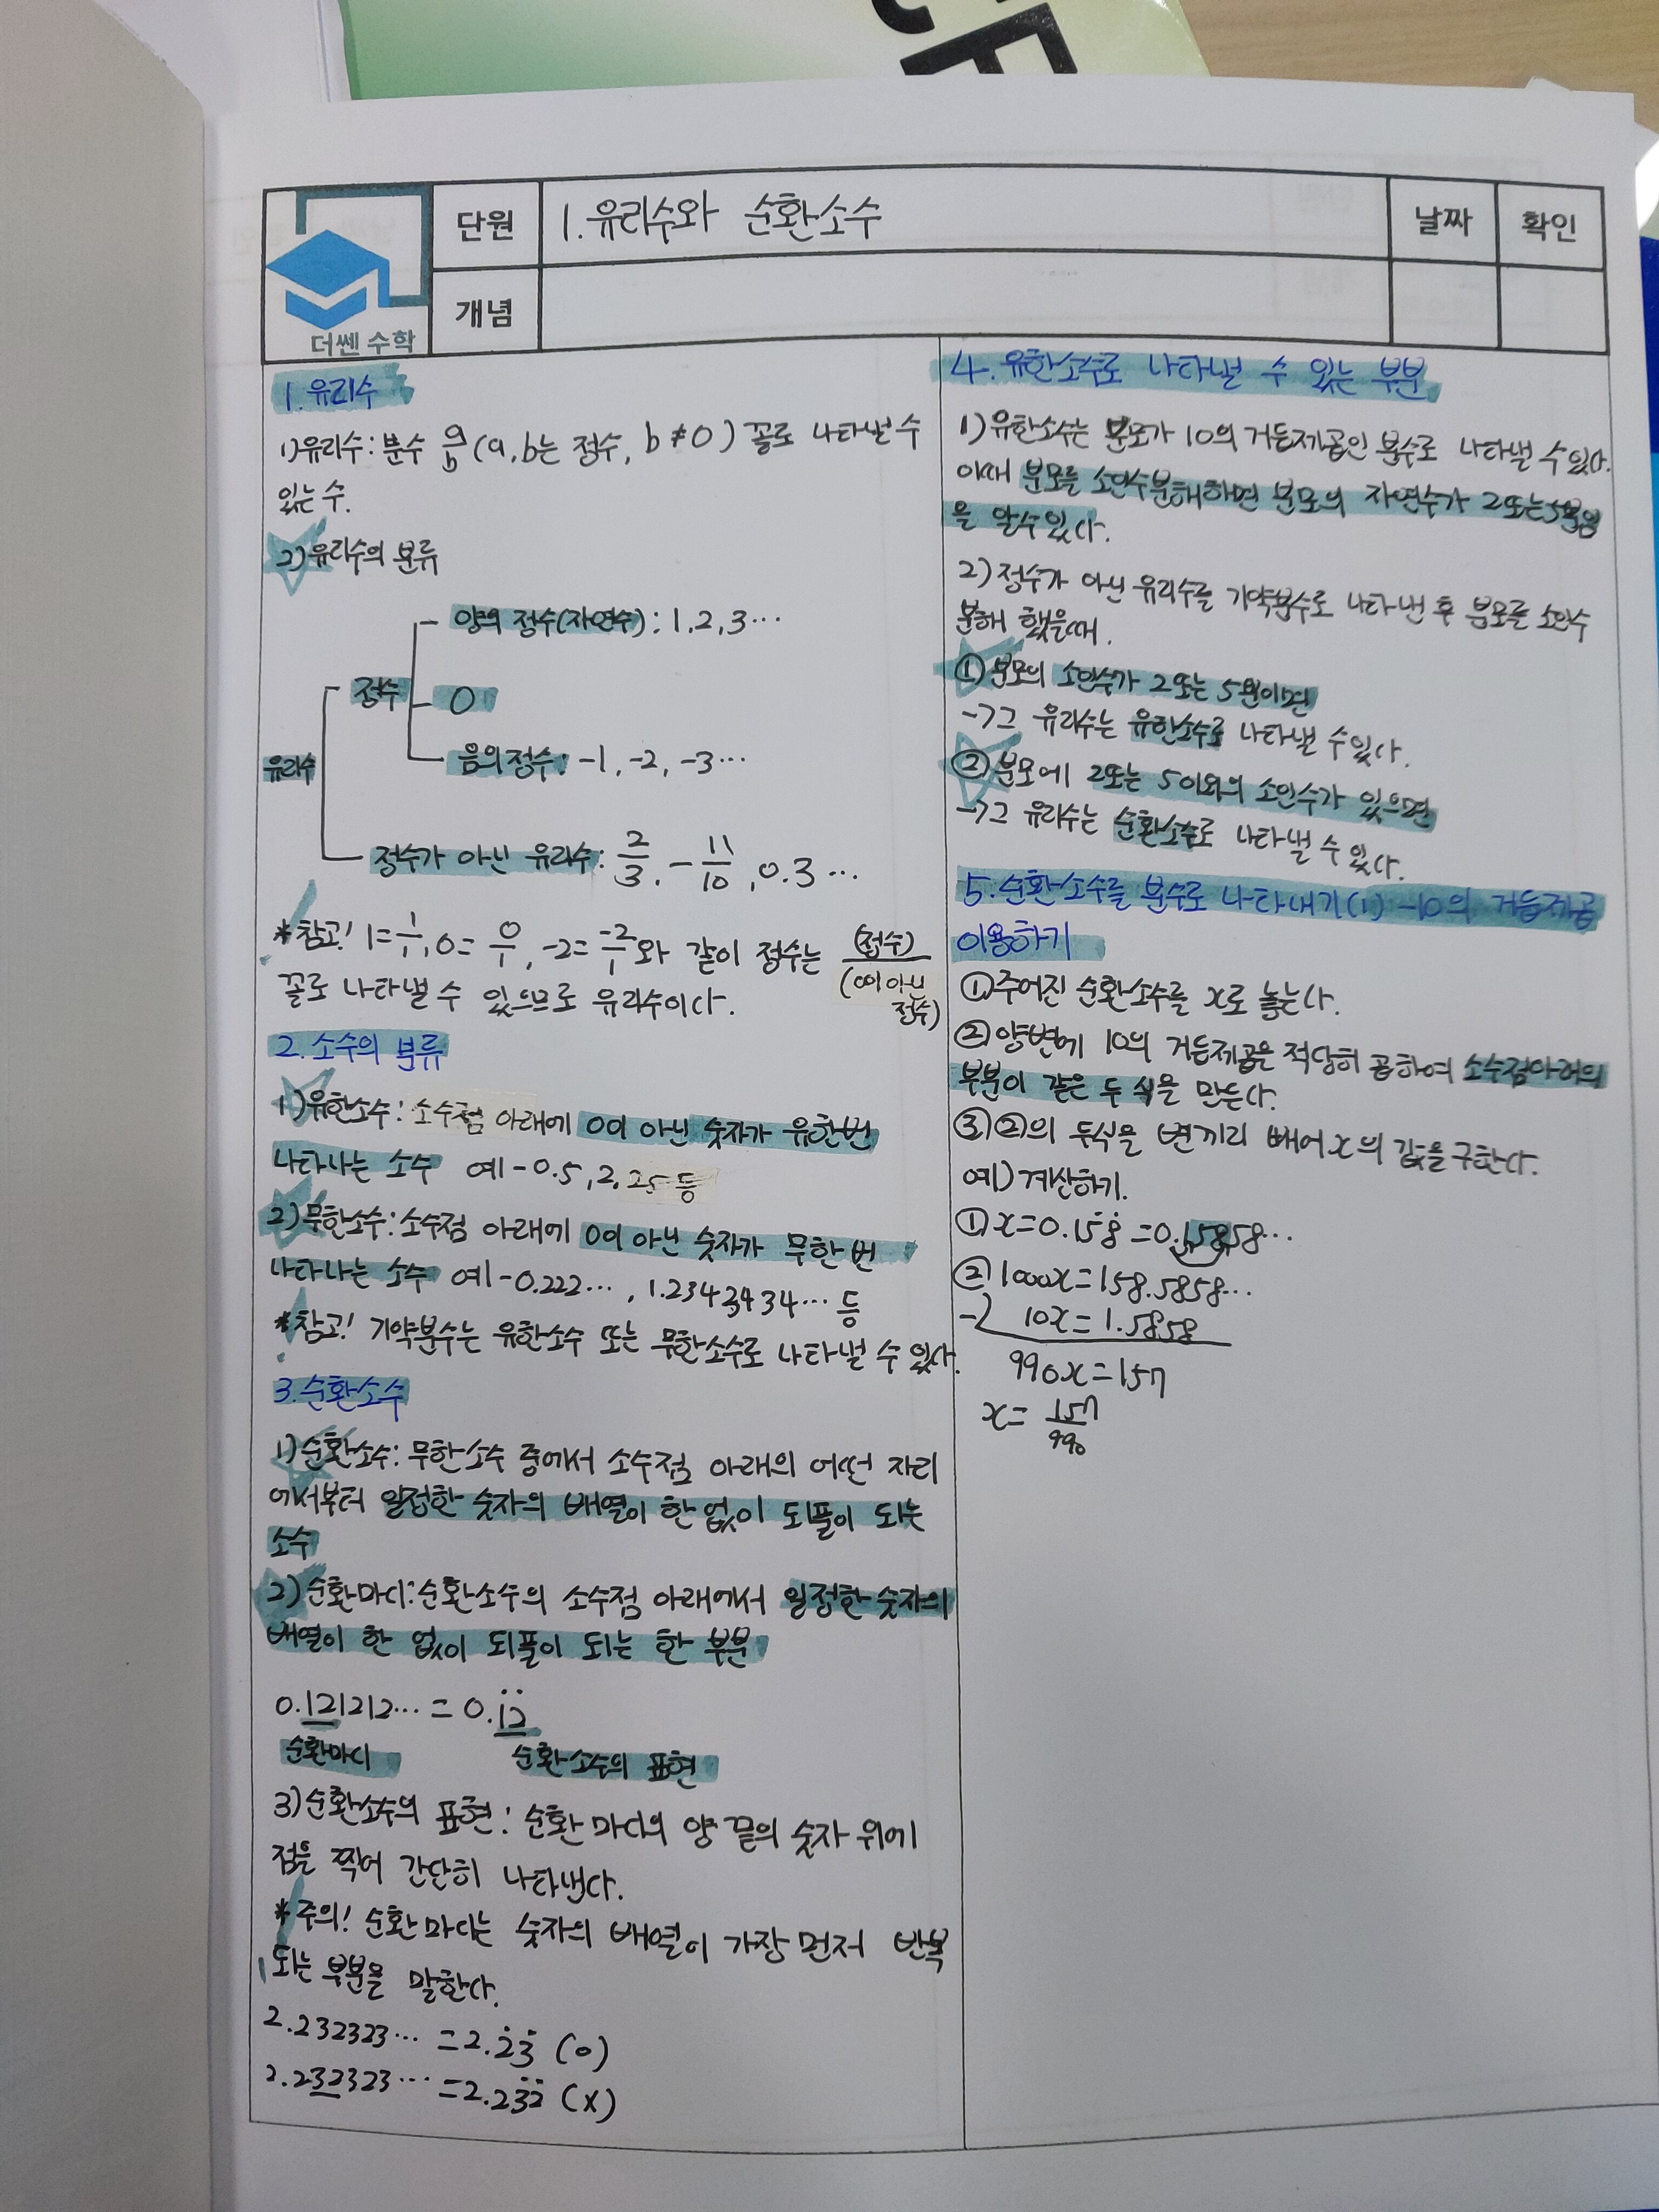 CF
단원
1. 유리수와 순환소수
날짜
확인
개념
더쎈 수학
1. 유리수
1) 유리수 : 분수 a/b (a, b는 정수, b≠0) 꼴로 나타낼 수
있는 수.
2) 유리수의 분류
양의 정수(자연수) : 1, 2, 3 …
정수
0
음의 정수 : -1, -2, -3 …
유리수
정수가 아닌 유리수 : 2/3, -11/10, 0.3 …
*참고! 1=1/1, 0=0/1, -2=-2/1와 같이 정수는 (정수)/(0이 아닌 정수)
꼴로 나타낼 수 있으므로 유리수이다.
2. 소수의 분류
1) 유한소수 : 소수점 아래에 0이 아닌 숫자가 유한번
나타나는 소수 예-0.5, 2.25 등
2) 무한소수 : 소수점 아래에 0이 아닌 숫자가 무한 번
나타나는 소수 예-0.222…, 1.2343434… 등
*참고! 기약분수는 유한소수 또는 무한소수로 나타낼 수 있다.
3. 순환소수
1) 순환소수 : 무한소수 중에서 소수점 아래의 어떤 자리
에서부터 일정한 숫자의 배열이 한 없이 되풀이 되는
소수
2) 순환마디 : 순환소수의 소수점 아래에서 일정한 숫자의
배열이 한 없이 되풀이 되는 한 부분
0.121212… = 0.1̇2̇
순환마디 순환소수의 표현
3) 순환소수의 표현 : 순환 마디의 양 끝의 숫자 위에
점을 찍어 간단히 나타낸다.
*주의! 순환 마디는 숫자의 배열이 가장 먼저 반복
되는 부분을 말한다.
2.232323… = 2.2̇3̇ (o)
2.232323… = 2.23̇2̇ (x)
4. 유한소수로 나타낼 수 있는 부분
1) 유한소수는 분모가 10의 거듭제곱인 분수로 나타낼 수 있다.
이때 분모를 소인수분해하면 분모의 자연수가 2또는 5뿐임
을 알수있다.
2) 정수가 아닌 유리수를 기약분수로 나타낸 후 분모를 소인수
분해 했을때.
① 분모의 소인수가 2또는 5뿐이면
->그 유리수는 유한소수로 나타낼 수 있다.
② 분모에 2또는 5이외의 소인수가 있으면
->그 유리수는 순환소수로 나타낼 수 있다.
5. 순환소수를 분수로 나타내기(1) -10의 거듭제곱
이용하기
① 주어진 순환소수를 x로 놓는다.
② 양변에 10의 거듭제곱을 적당히 곱하여 소수점아래의
부분이 같은 두 식을 만든다.
③ ②의 두식을 변끼리 빼어 x의 값을 구한다.
예) 계산하기.
① x=0.15̇8̇=0.15858…
② 1000x=158.5858…
-) 10x=1.5858
990x=157
x=157/990